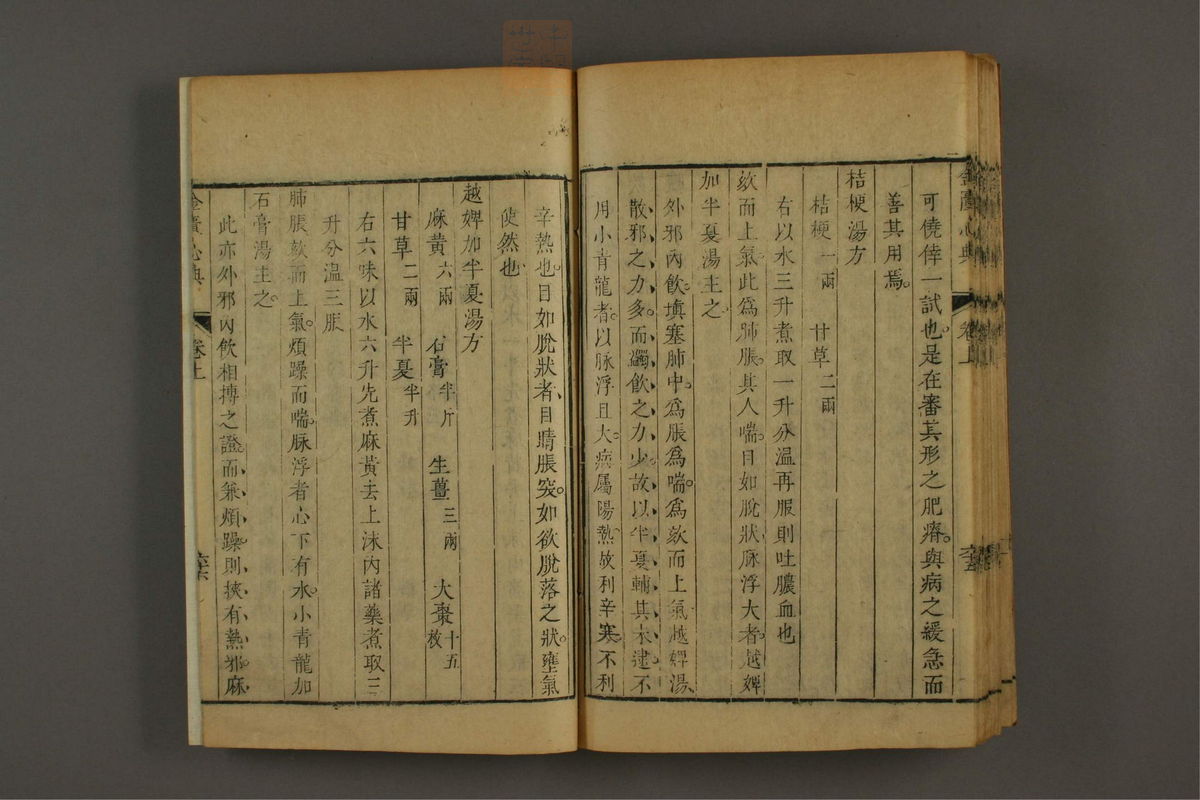 金匱心典 卷上
可僥倖一試也是在審其形之肥瘠與病之緩急而
善其用焉
桔梗湯方
桔梗一兩 甘草二兩
右以水三升煮取一升分溫再服則吐膿血也
欬而上氣此為肺脹其人喘目如脫狀脉浮大者越婢
加半夏湯主之
外邪內飲填塞肺中為脹為喘為欬而上氣越婢湯
散邪之力多而蠲飲之力少故以半夏輔其未逮不
用小青龍者以脉浮且大病屬陽熱故利辛寒不利
辛熱也目如脫狀者目睛脹突如欲脫落之狀壅氣
使然也
越婢加半夏湯方
麻黃六兩 石膏半斤 生薑三兩 大棗十五枚
甘草二兩 半夏半升
右六味以水六升先煮麻黃去上沫內諸藥煮取三
升分溫三服
肺脹欬而上氣煩躁而喘脉浮者心下有水小青龍加
石膏湯主之
此亦外邪內飲相搏之證而兼煩躁則挾有熱邪麻
金匱心典 卷上